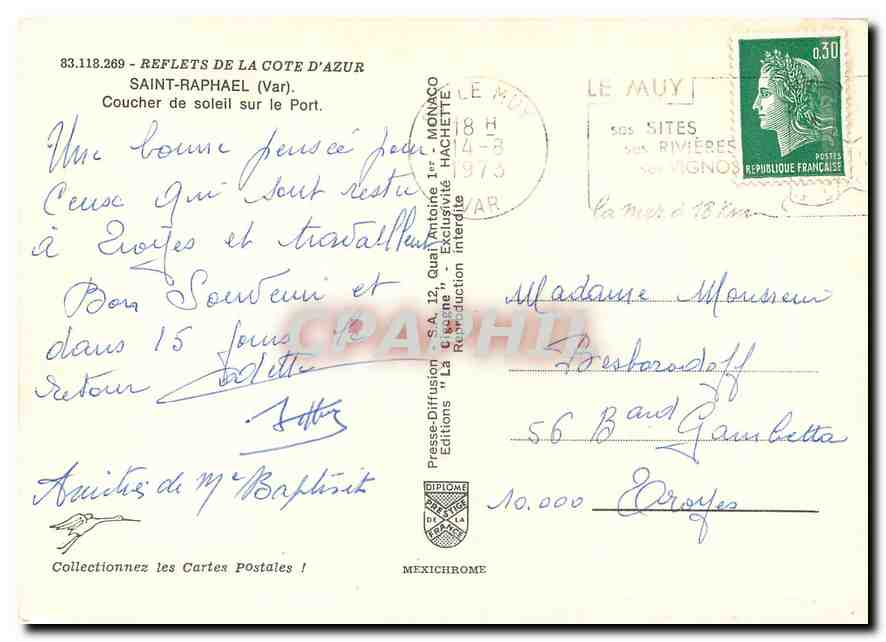 83.118.269 - REFLETS DE LA COTE D'AZUR
SAINT-RAPHAEL (Var).
Coucher de soleil sur le Port.
Une bonne pensée pour
Ceux qui sont restés
à Troyes et travaillent
Bon Souvenir et
dans 15 jours le
retour Odette
Amitiés de Me Baptiste
Collectionnez les Cartes Postales !
Presse-Diffusion - S.A. 12, Quai Antoine 1er - MONACO
Editions "La Cigogne" - Exclusivité HACHETTE
Reproduction interdite
DIPLOME
PRESTIGE
DE LA
FRANCE
MEXICHROME
LE MUY
18 H
14-8
1973
VAR
LE MUY
ses SITES
ses RIVIÈRES
ses VIGNOB
la mer à 18 Km
0,30
POSTES
REPUBLIQUE FRANÇAISE
Madame Monsieur
Besborodoff
56 Bard Gambetta
10.000 Troyes
CPAPHIL